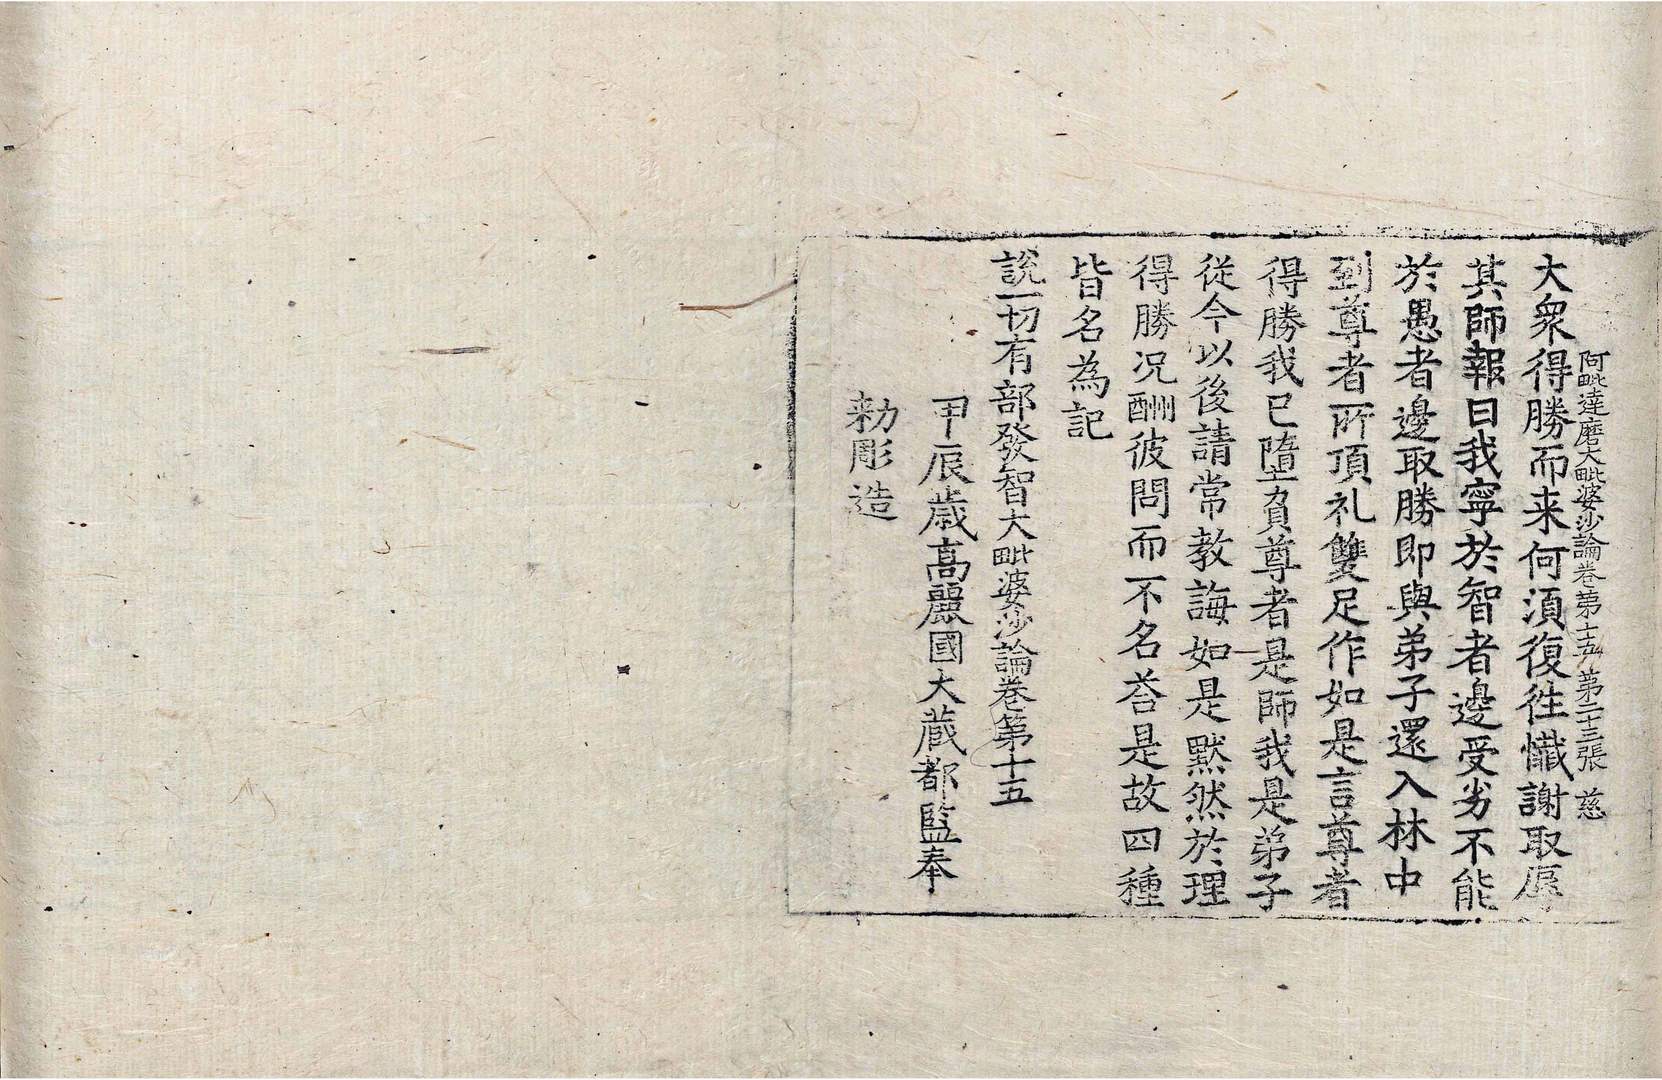 阿毗達磨大毗婆沙論卷第十五 第二十三張 慈
大衆得勝而来何湏復徃懺謝取辱
其師報曰我寧於智者邊受劣不能
於愚者邊取勝即與弟子還入林中
到尊者所頂礼雙足作如是言尊者
得勝我已墮負尊者是師我是弟子
從今以後請常教誨如是默然於理
得勝况酬彼問而不名荅是故四種
皆名為記
說一切有部發智大毗婆沙論卷第十五
甲辰歲高麗國大藏都監奉
勑彫造